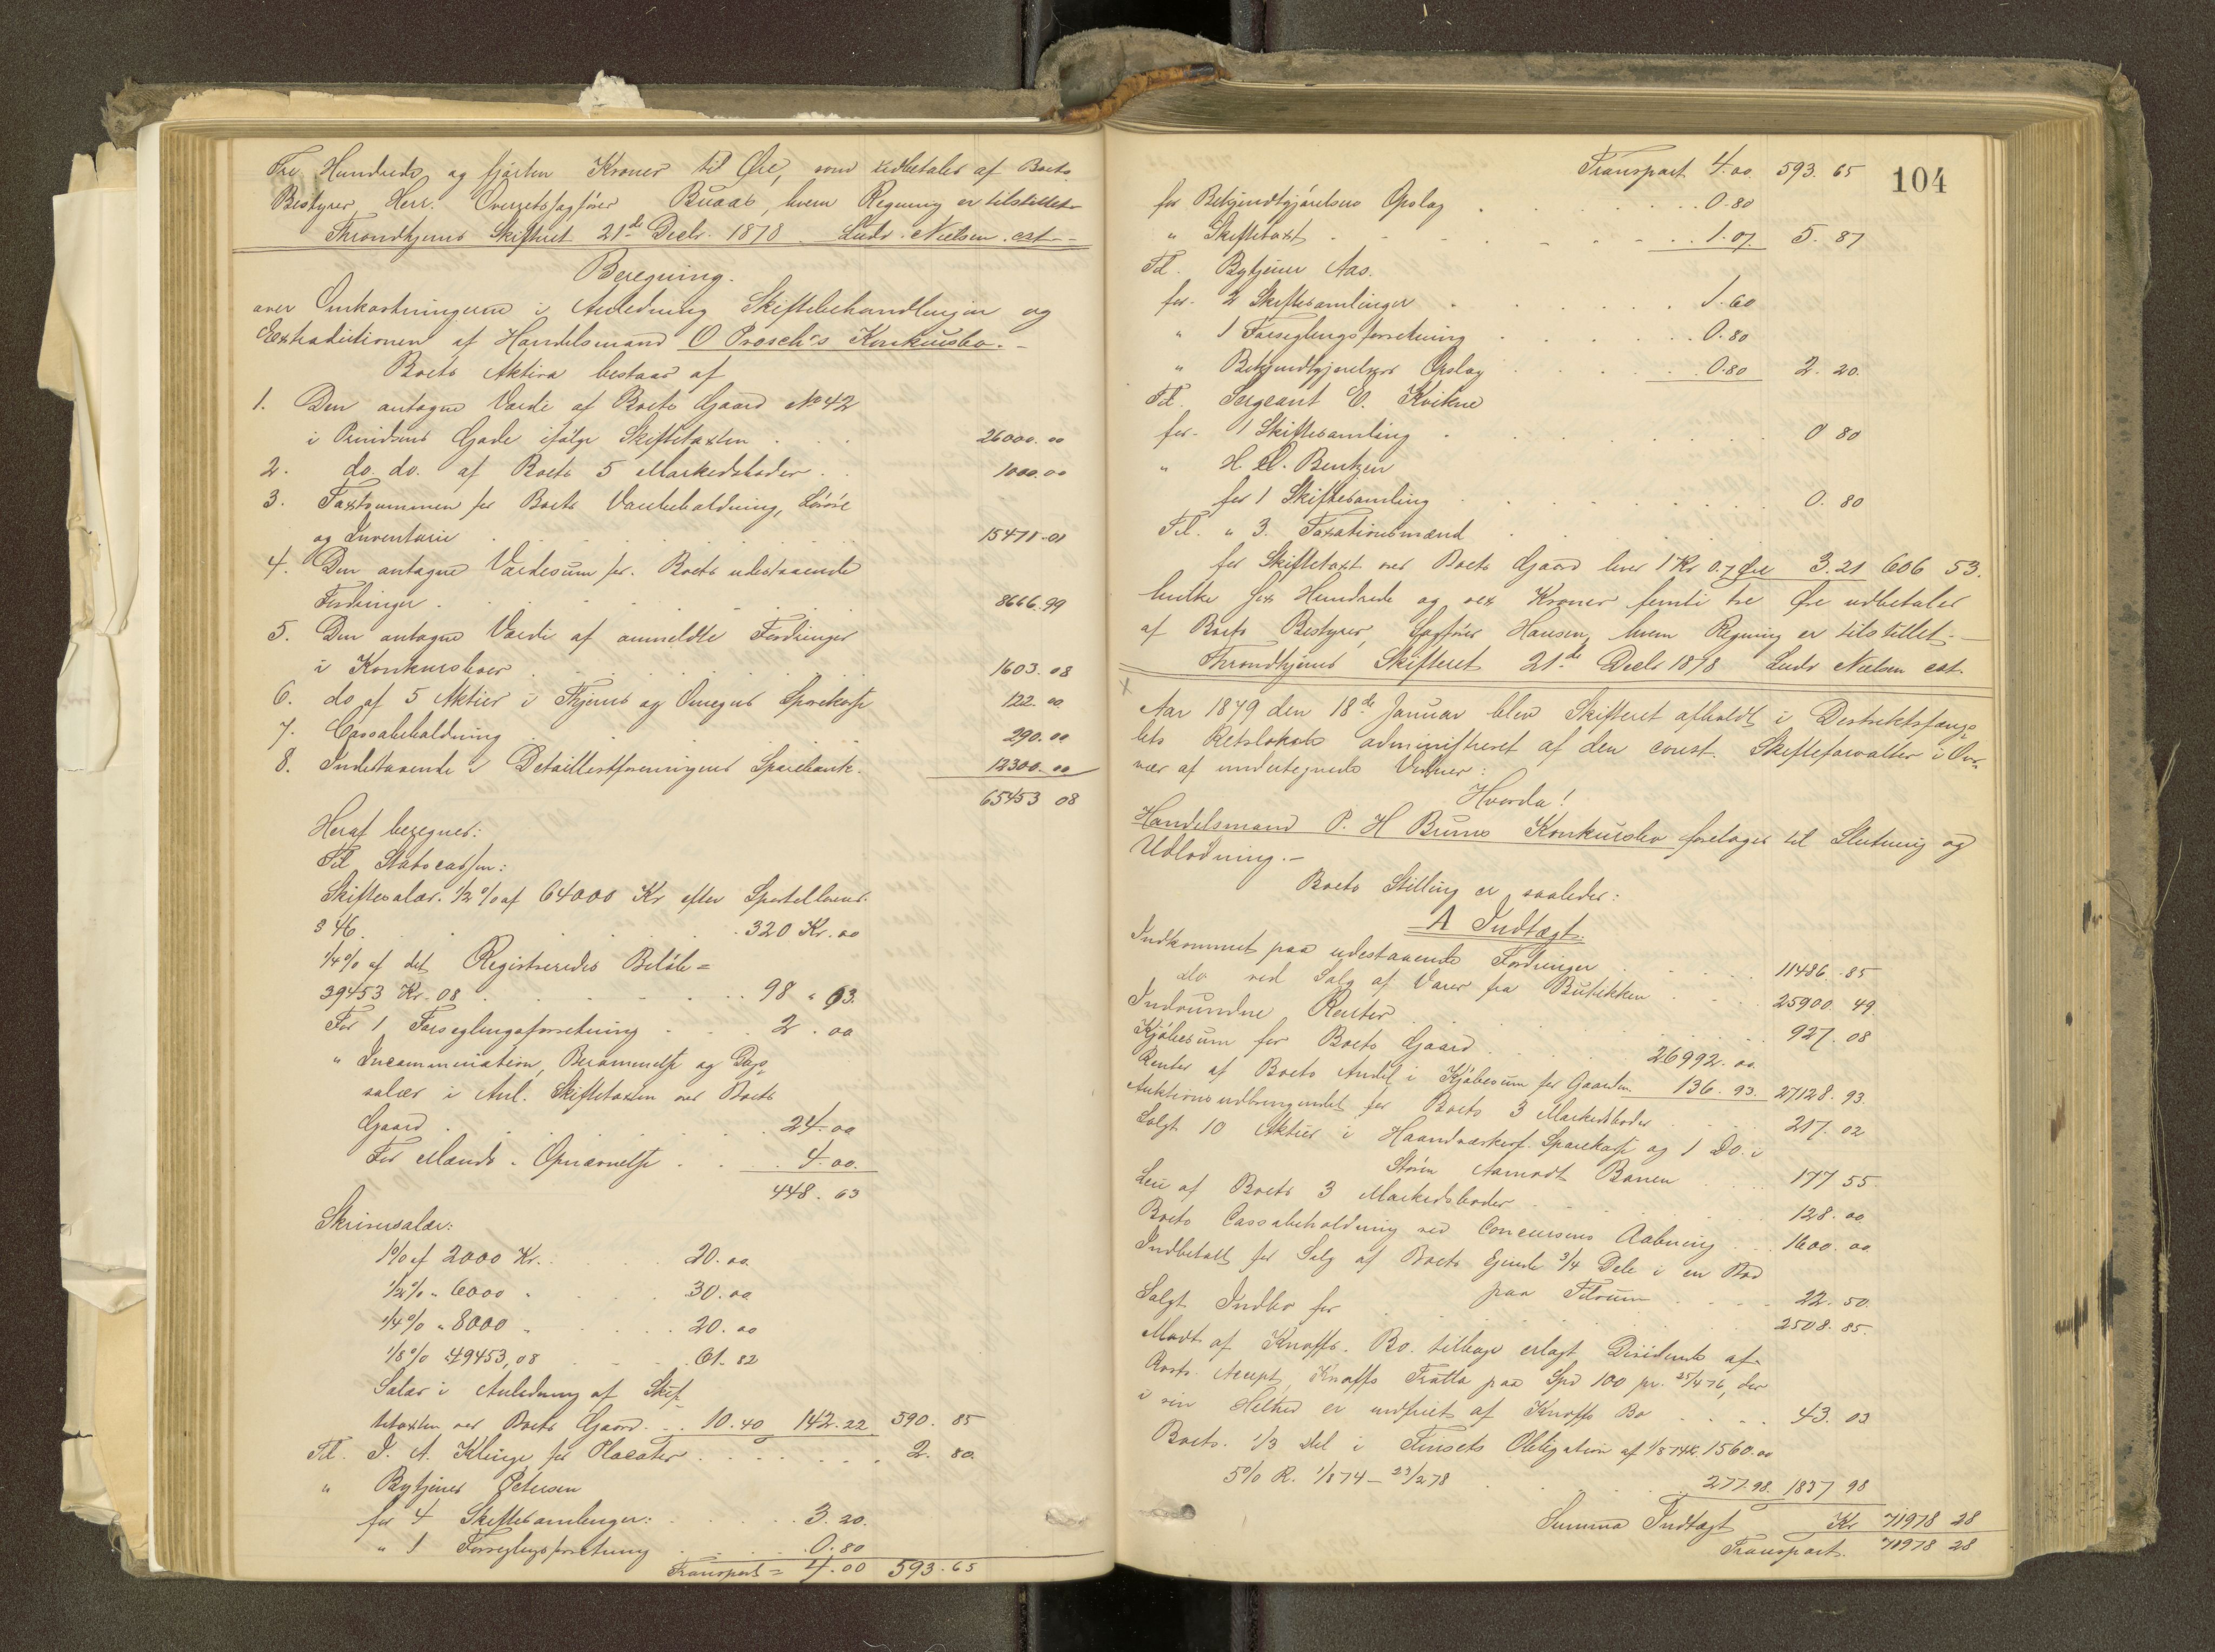 Tre Hundrede og fjorten Kroner ti Øre, som udbetales af Boets
Bestyrer Herr. Overretssagfører Buaas, hvem Regning er tilstillet
Throndhjems Skifteret 21de Decbr. 1878 Ludv. Nielsen. cst.
Beregning.
over Omkostningerne i Anledning Skiftebehandlingen og
Extraditionen af Handelsmand O Prosch's Konkursbo.
Boets Aktiva bestaar af
1. Den antagne Værdi af Boets Gaard No 42
i Prindsens Gade ifølge Skiftetaxten . . . 26000.00
2. do. do. af Boets 5 Markedsboder . . 1000.00
3. Taxtsummen for Boets Varebeholdning, Løsøre
og Inventarie . . . 15471.01
4. Den antagne Værdesum for Boets udestaaende
Fordringer . . . 8666.99
5. Den antagne Værdi af anmeldte Fordringer
i Konkursboer . . . 1603.08
6. do af 5 Aktier i Thjems og Omegns Sparekasse 122.00
7. Cassabeholdning . . . 290.00
8. Indestaaende i Detaillistforeningens Sparebank. 12300.00
65453 08
Heraf beregnes:
Til Statscassen:
Skiftesalær. 1/2 % af 64000 Kr efter Sportelloven
§ 46. . . . 320 Kr. 00
1/4 % af det Registreredes Beløb =
39453 Kr. 08 . . . 98 " 63
For 1 Forseglingsforretning . . . 2 . 00
" Incamination, Berammelse og Dags
salær i Anl. Skiftetaxten over Boets
Gaard . . . 24.00
For Mænds Opnævnelse . . . 4.00.
448. 63
Skriversalær:
1 % af 2000 Kr. . . 20.00
1/2 % " 6000 " . . 30.00
1/4 % " 8000 " . . 20.00
1/8 % " 49453,08 . . 61.82
Salær i Anledning af Skif-
tetaxten over Boets Gaard . . 10.40 142.22 590. 85
Til J. A. Klinge for Placater . . . 2. 80.
" Bytjener Petersen
for 4 Skiftesamlinger: . . . 3.20.
" 1 Forseglingsforretning . . . 0.80
Transport = 4.00 593.65
104
Transport 4.00. 593. 65
for Bekjendtgjørelsers Opslag . . . 0.80
" Skiftetaxt . . . 1.07 5. 87
Til Bytjener Aas.
for 2 Skiftesamlinger . . . 1.60
" 1 Forseglingsforretning . . . 0.80
" Bekjendtgjørelsers Opslag . . . 0.80 2. 20.
Til Sergeant E. Kvikne
for 1 Skiftesamling . . . 0 80
" H. O. Bentzen
for 1 Skiftesamling . . . 0. 80
Til " 3. Taxationsmænd
for Skiftetaxt over Boets Gaard hver 1 Kr 0.7 Øre 3.21 606 53.
hvilke Sex Hundrede og sex Kroner femti tre Øre udbetales
af Boets Bestyrer, Sagfører Hansen, hvem Regning er tilstillet.
Throndhjems Skifteret 21de Decbr 1878 Ludv Nielsen cst.
x
Aar 1879 den 18de Januar blev Skifteret afholdt i Destriktsfængs-
lets Retslokale administreret af den const. Skifteforvalter i Over-
vær af undertegnede Vidner:
Hvorda!
Handelsmand P. H Bruns Konkursbo foretages til Slutning og
Udlodning.
Boets Stilling er saaledes:
A Indtægt.
Indkommet paa udestaaende Fordringer . . . 11486.85
do ved Salg af Varer fra Butikken . . . 25900 49
Indvundne Renter . . . 927.08
Kjøbesum for Boets Gaard . . . 26992.00
Renter af Boets Andel i Kjøbesum for Gaarden 136.93. 27128.93.
Auktionsudbringendet for Boets 3 Markedsboder . . . 217. 02
Solgt 10 Aktier i Haandværkerf. Sparekasse og 1 Do. i
Støren Aamodt Banen . . . 177 55
Leie af Boets 3 Markedsboder . . . 128.00
Boets Cassabeholdning ved Concursens Aabning . . 1600.00
Indbetalt for Salg af Boets Eiende 3/4 Dele i en Bod
paa . . . 22.50.
Solgt Indbo for . . . 2508.85.
Modt. af Knoffs Bo tilbage erlagt Dividende af
Boets Accept, Knoffs Tratta paa Spd 100 pr. 25/4 76, der
i sin Helhed er indfriet af Knoffs Bo . . . 43. 03
Boets 1/3 Del i Obligation af 1/8 74 K. 1560.00
5 % R. 1/8 74 – 23/2 78 . . . 277.98. 1837 98
Summa Indtægt Kr 71978 28
Transport. 71978 28